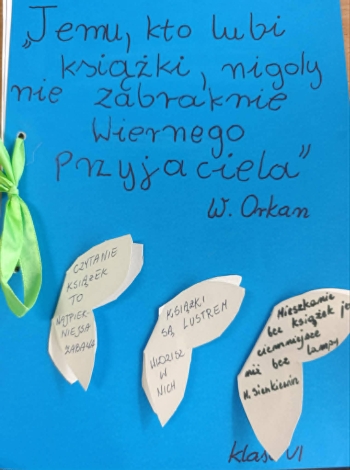 „Jemu, kto lubi
książki, nigdy
nie zabraknie
Wiernego
Przyjaciela”
W. Orkan
CZYTANIE
KSIĄŻEK
TO
NAJPIĘK-
NIEJSZA
ZABAWA
KSIĄŻKI
SĄ LUSTREM
WIDZISZ
W
NICH
Mieszkanie
bez książek je
ciemniejsze
niż bez lampy
H. Sienkiewicz
klasa VI